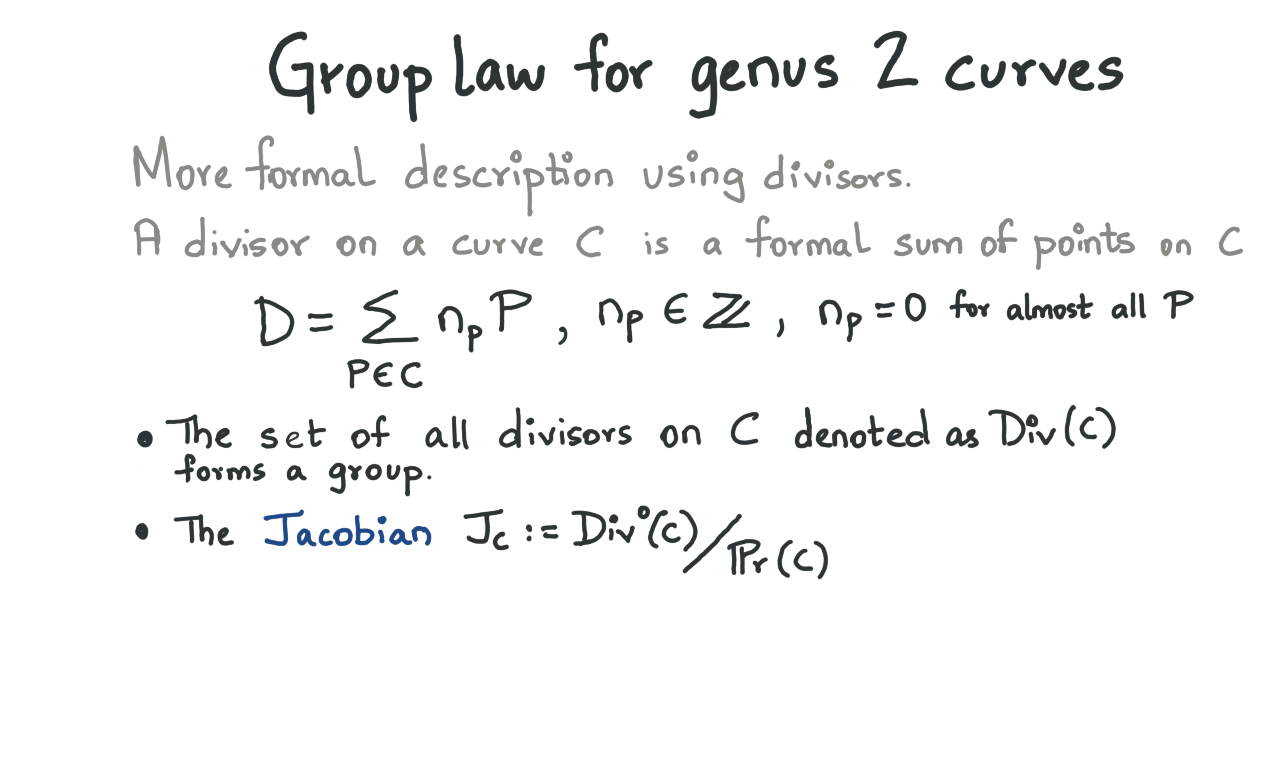 Group law for genus 2 curves
More formal description using divisors.
A divisor on a curve C is a formal sum of points on C
D = ∑ nₚP , nₚ ∈ ℤ , nₚ = 0 for almost all P
P∈C
• The set of all divisors on C denoted as Div(C)
forms a group.
• The Jacobian J_C := Div⁰(C)/Pr(C)